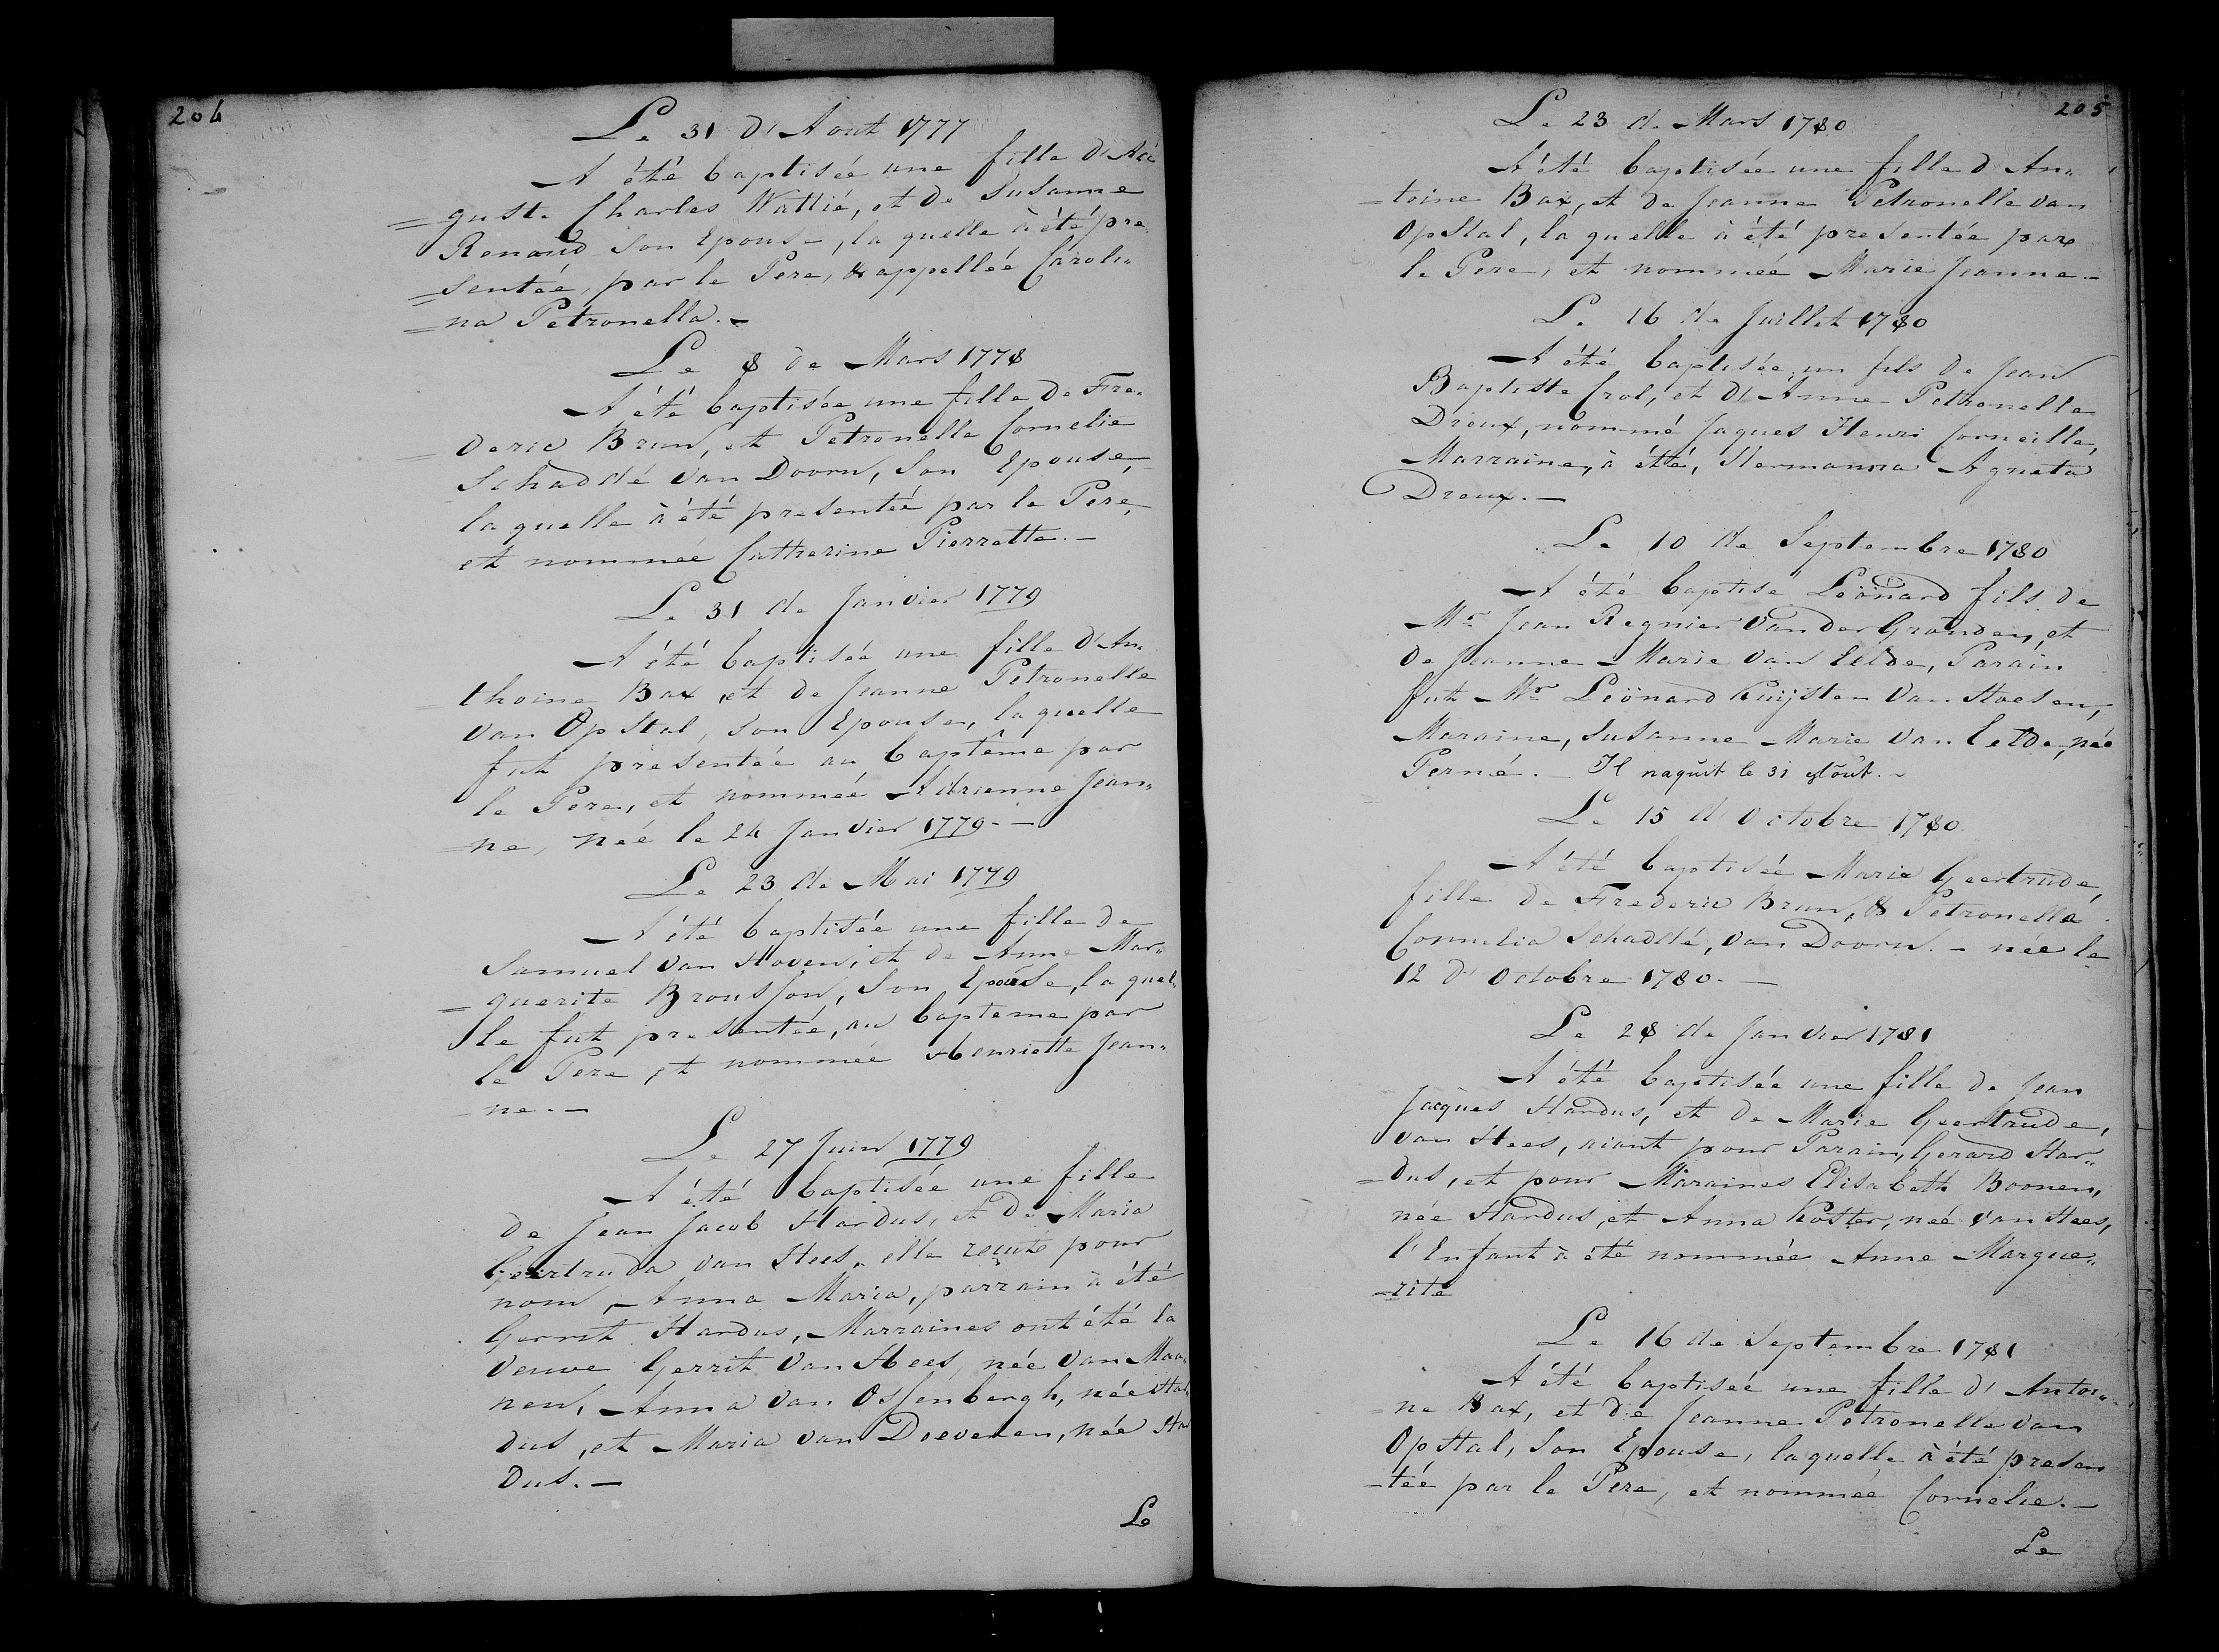 204
Le 31 d'Aout 1777
A été baptisée une fille d'Au
=guste Charles Wattié, et de Susanne
Renaud son Epouse, la quelle à été pre
=sentée, par le Pere, & appellée Caroli„
=na Petronella. —
Le 8 de Mars 1778
A été baptisée une fille de Fre„
=deric Brun, et Petronelle Cornelie
Schaddé van Doorn, son Epouse,
la quelle à été presentée par le Pere,
et nommée Catherine Pierrette. —
Le 31 de Janvier 1779
A été baptisée une fille d'An„
=thoine Bax, et de Jeanne Petronelle
van Opstal, son Epouse, la quelle
fut presentée au baptême par
le Pere, et nommée Adrienne Jean„
=ne, née le 24 Janvier 1779. —
Le 23 de Mai 1779
A été baptisée une fille de
Samuel van Hoven, et de Anne Mar„
=guerite Brousson, son Epouse, la quel„
le fut presentée, au bapteme par
le Pere, et nommée Henriette Jean„
-ne. —
Le 27 Juin 1779
A été baptisée une fille
de Jean Jacob Hardus, et de Maria
Geertruda van Hees, elle reçute pour
nom, Anna Maria, parrain à été
Gerrit Hardus, Marraines ont été la
veuve Gerrit van Hees, née van Maa„
nen, Anna van Ossenbergh, née Har
dus, et Maria van Deevenen, née Har
dus. —
Le
205
Le 23 de Mars 1780
A été baptisée une fille d'An„
=toine Bax, et de Jeanne Petronelle van
Opstal, la quelle à été presentée par
le Pere, et nommée Marie Jeanne. —
Le 16 de Juillet 1780
A été baptisée un fils de Jean
Baptiste Crol, et d'Anne Petronelle
Dreux, nommé Jaques Henri Corneille,
Marraine, à été, Hermanna Agneta
Dreux. —
Le 10 de Septembre 1780
A été baptisé Leönard fils de
Mr Jean Regnier Van der Gronden, et
de Jeanne Marie van Eelde, Parain
fut Mr Leönard Kuijsten van Hoesen,
Maraine, Susanne Marie van Eelde, née
Perné. Il naquit le 31 Aoút. —
Le 15 d'Octobre 1780.
A été baptisée Maria Geertrude,
fille de Frederic Brun, & Petronella
Cornelia Schaddé, van Doorn. — née le
12 d'Octobre 1780. —
Le 28 de Janvier 1781
A été baptisée une fille de Jean
Jacques Hardus, et de Marie Geertrude,
van Hees, aiant pour Parain, Gerard Har„
=dus, et pour Maraines Elisabeth Boonen,
née Hardus, et Anna Koster, née van Hees,
l'Enfant à été nommée Anne Margue„
-rite
Le 16 de Septembre 1781
A été baptiseé une fille d'Antoi„
=ne Bax, et de Jeanne Petronelle van
Opstal, son Epouse, laquelle à été presen
-tée par le Pere, et nommée Cornelie. —
Le